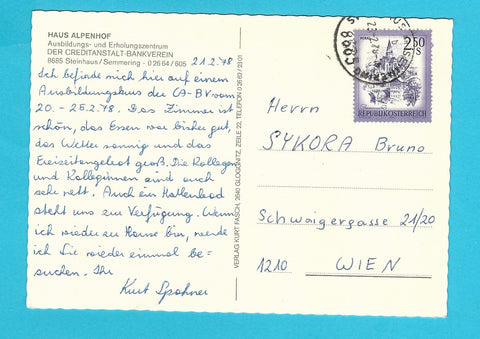 HAUS ALPENHOF
Ausbildungs- und Erholungszentrum
DER CREDITANSTALT-BANKVEREIN
8685 Steinhaus / Semmering · 0 26 64 / 605
21.2.78
Ich befinde mich hier auf einem
Ausbildungskurs der CA-BV vom
20. - 25.2.78. Das Zimmer ist
schön, das Essen war bisher gut,
das Wetter sonnig und das
Freizeitangebot groß. Die Kollegen
und Kolleginnen sind auch
sehr nett. Auch ein Hallenbad
steht uns zur Verfügung. Wenn
ich wieder zu Hause bin, werde
ich Sie wieder einmal be=
suchen. Ihr
Kurt Spohner
VERLAG KURT FRASCH, 2640 GLOGGNITZ, ZEILE 22, TELEFON 0 26 62 / 22 01
8685
2.50
S
REPUBLIK ÖSTERREICH
Herrn
SYKORA Bruno
Schwaigergasse 21/20
1210 WIEN